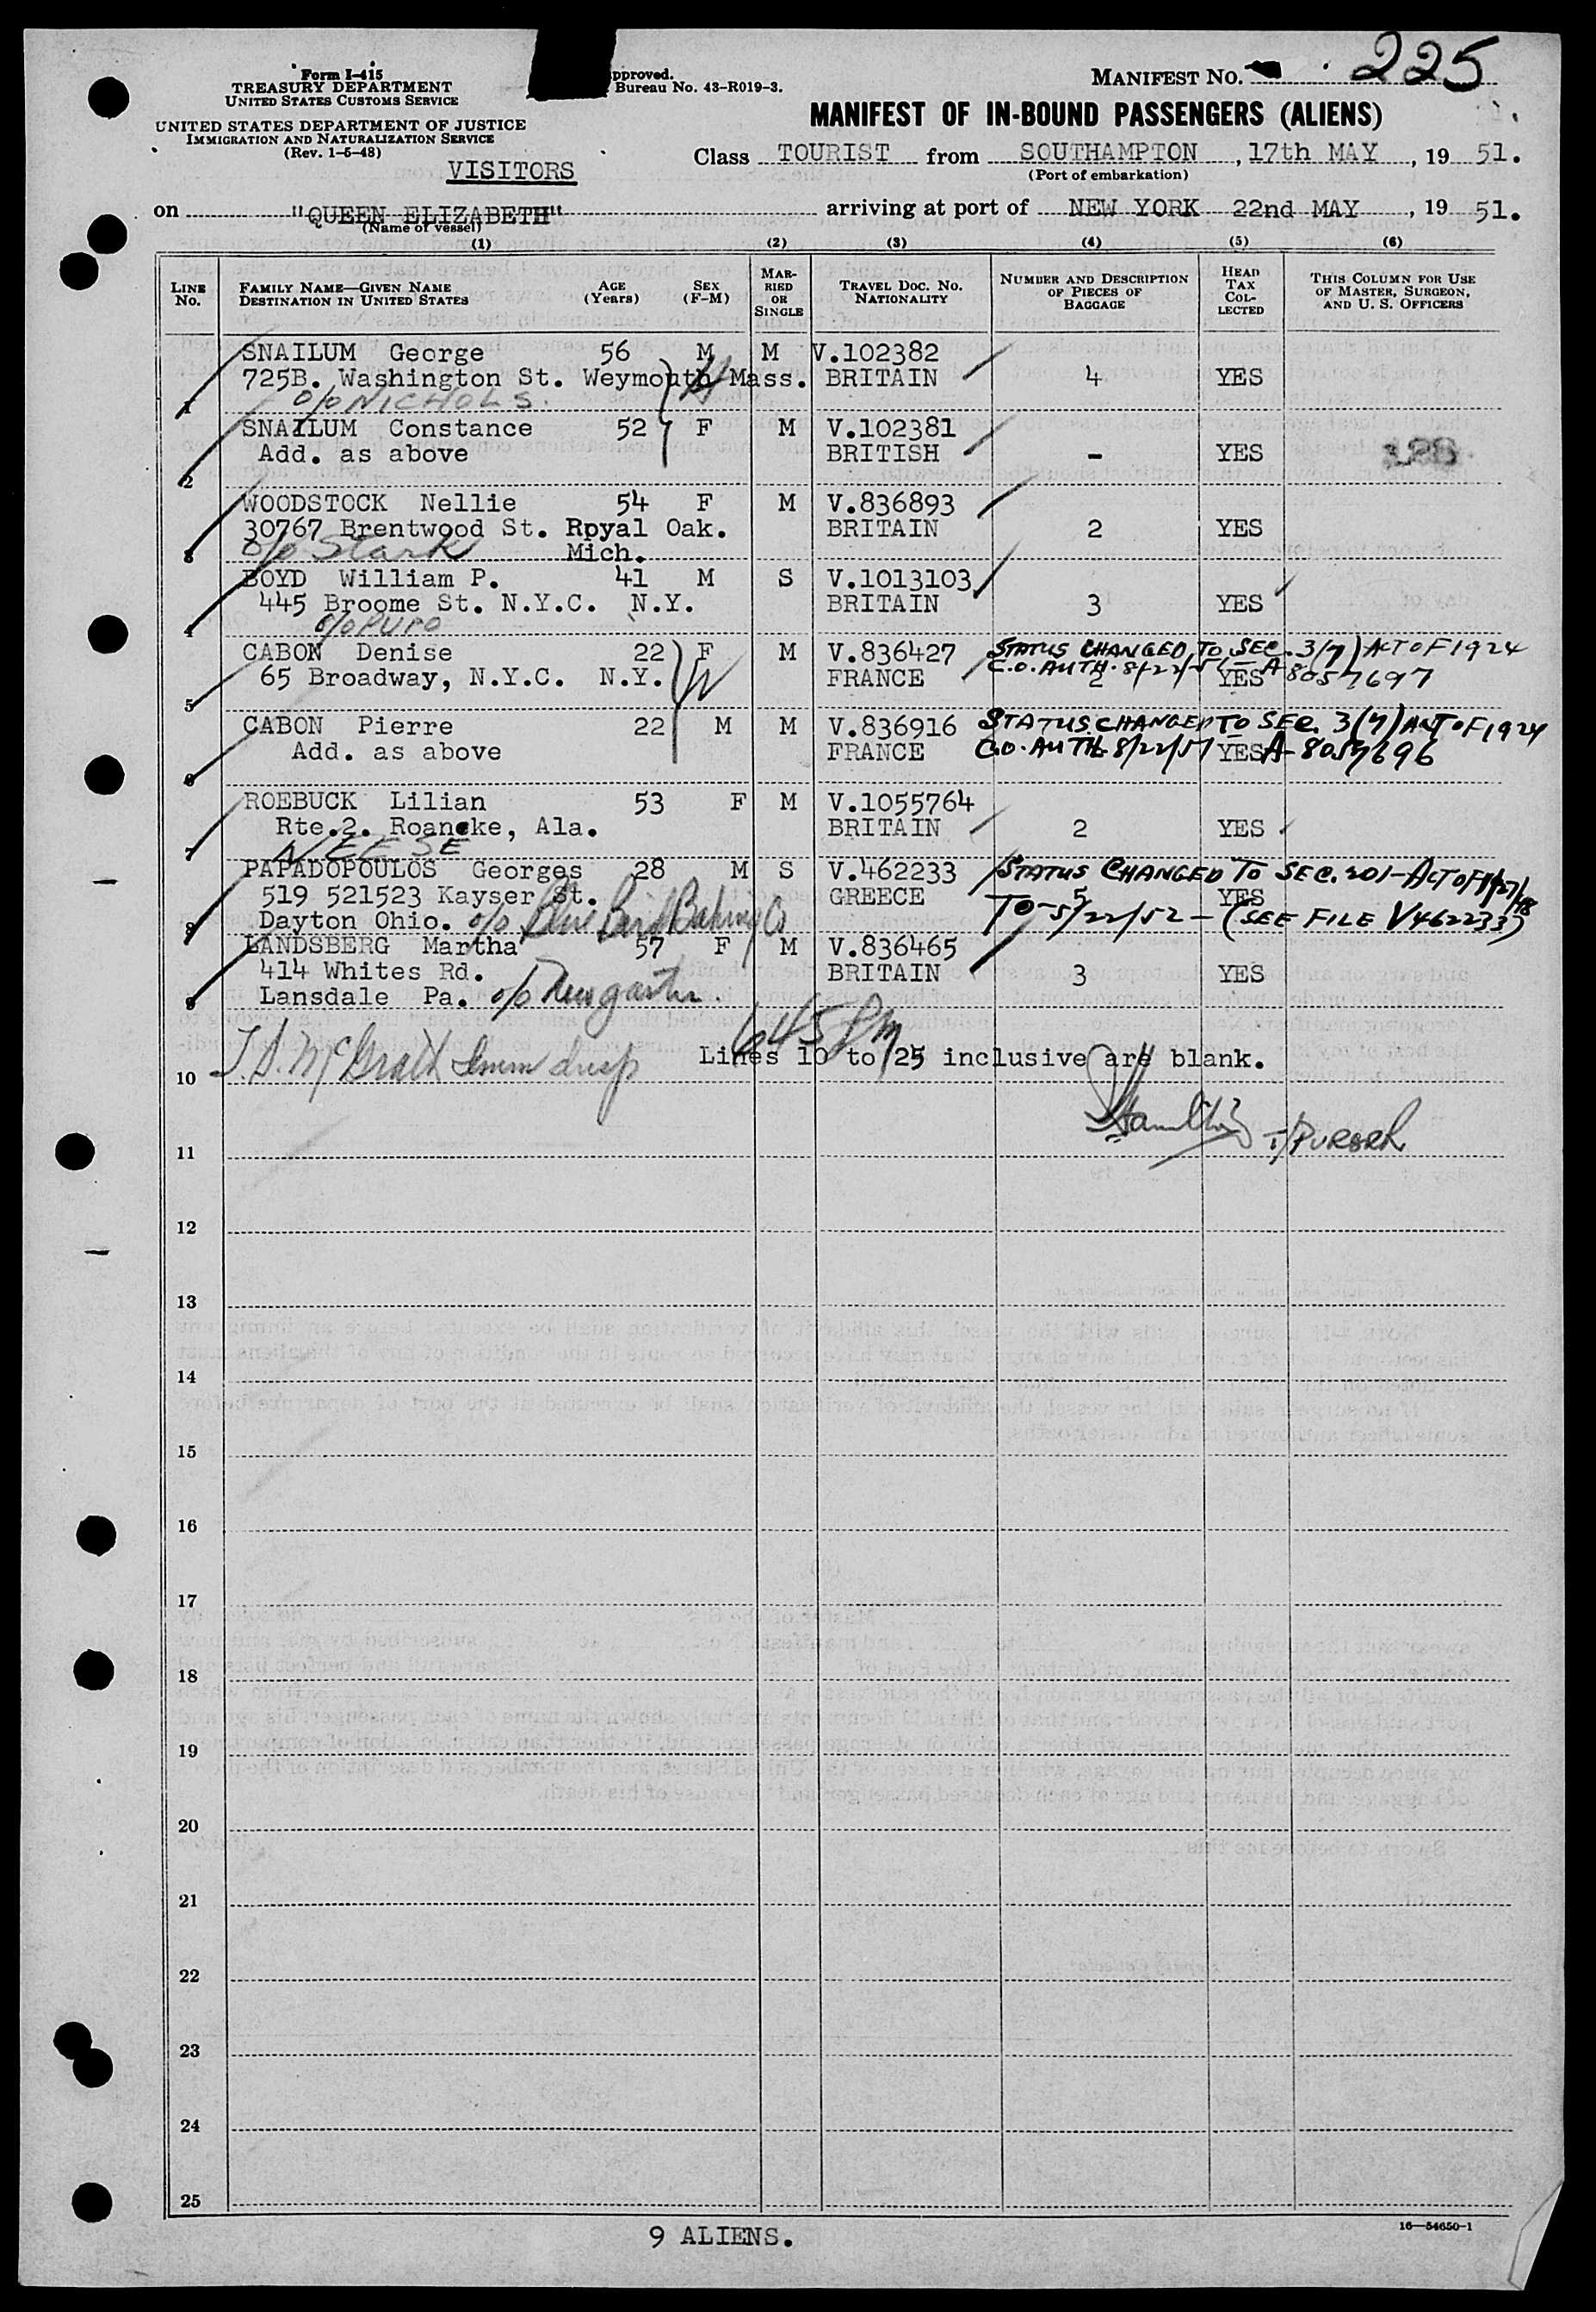 Form I-415
TREASURY DEPARTMENT
UNITED STATES CUSTOMS SERVICE
UNITED STATES DEPARTMENT OF JUSTICE
IMMIGRATION AND NATURALIZATION SERVICE
(Rev. 1-6-48)
pproved.
Bureau No. 43-R019-3.
MANIFEST NO. 225
MANIFEST OF IN-BOUND PASSENGERS (ALIENS)
VISITORS
Class TOURIST from SOUTHAMPTON, 17th MAY, 19 51.
(Port of embarkation)
on "QUEEN ELIZABETH" arriving at port of NEW YORK 22nd MAY, 19 51.
(Name of vessel)
(1) (2) (3) (4) (5) (6)
LINE NO. FAMILY NAME—GIVEN NAME DESTINATION IN UNITED STATES AGE (Years) SEX (F-M) MARRIED OR SINGLE TRAVEL DOC. NO. NATIONALITY NUMBER AND DESCRIPTION OF PIECES OF BAGGAGE HEAD TAX COLLECTED THIS COLUMN FOR USE OF MASTER, SURGEON, AND U. S. OFFICERS
SNAILUM George 56 M M V.102382
725B. Washington St. Weymouth Mass. BRITAIN 4 YES
1 c/o NICHOLS.
SNAILUM Constance 52 F M V.102381
Add. as above BRITISH - YES 328
2
WOODSTOCK Nellie 54 F M V.836893
30767 Brentwood St. Rpyal Oak. BRITAIN 2 YES
3 c/o Stark Mich.
BOYD William P. 41 M S V.1013103
445 Broome St. N.Y.C. N.Y. BRITAIN 3 YES
4 c/o PUPO
CABON Denise 22 F M V.836427 STATUS CHANGED TO SEC. 3(7) ACT OF 1924
65 Broadway, N.Y.C. N.Y. FRANCE 2 YES C.O. AUTH. 8/22/51 - A-8057697
5
CABON Pierre 22 M M V.836916 STATUS CHANGED TO SEC. 3(7) ACT OF 1924
Add. as above FRANCE YES C.O. AUTH 8/22/51 A-8057696
6
ROEBUCK Lilian 53 F M V.1055764
Rte.2. Roanoke, Ala. BRITAIN 2 YES
7 NEESE
PAPADOPOULOS Georges 28 M S V.462233 STATUS CHANGED TO SEC. 201-ACT OF 1/27/48
519 521523 Kayser St. GREECE 5 YES
8 Dayton Ohio. c/o Blue Bird Baking Co TO-5/22/52-(SEE FILE V462233)
LANDSBERG Martha 57 F M V.836465
414 Whites Rd. BRITAIN 3 YES
9 Lansdale Pa. c/o
645 PM
10 T.S. McGrath Imm Insp Lines 10 to 25 inclusive are blank.
Hamilton T/PURSER
11
12
13
14
15
16
17
18
19
20
21
22
23
24
25
9 ALIENS.
16—54650-1